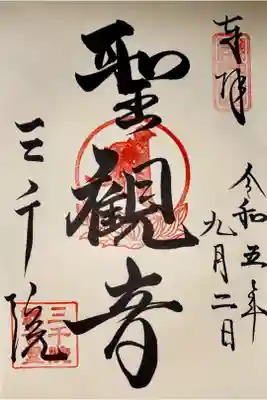 奉拝
令和五年
九月二日
聖観音
三千院